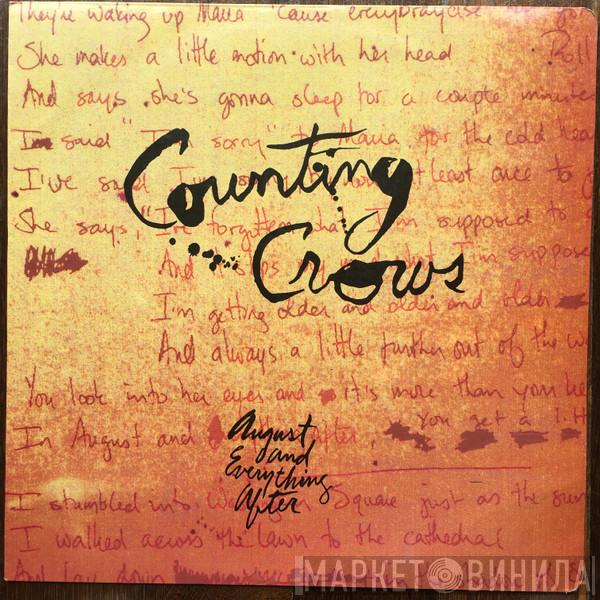 They're waking up Maria 'cause everybody else
She makes a little motion with her head Roll
And says she's gonna sleep for a couple minute
I'm said "I'm sorry" to Maria for the cold hea
I've said I'm sorry to at least once to
She says, "I've forgotten what I'm supposed to
Counting
Crows
And what I'm suppose
I'm getting older and older and older
And always a little further out of the w
You look into her eyes and it's more than you
In August and after, You get a litt
August
and
Everything
After
I stumbled into Washington Square just as the sun
I walked across the lawn to the cathedral
And lay down
МАРКЕТ ВИНИЛА